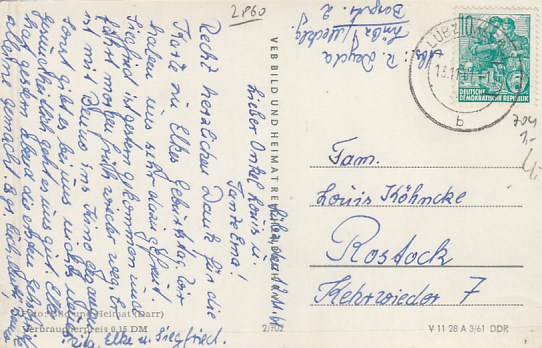 2860
Abs: R.
Lübz / Meckl.
LÜBZ
b
10
DEUTSCHE
DEMOKRATISCHE REPUBLIK
704
Lieber Onkel Louis u.
Tante Erna!
Recht herzlichen Dank für die
Karte zu Elkes Geburtstag. Wir
haben uns sehr gefreut.
Siegfried ist gestern gekommen und
fährt morgen früh wieder weg. Er
ist mit Benno im Kino
sonst gibt es bei uns nichts
gesundheitlich geht es uns gut. Elke
hat gestern Abend die
alleine gemacht. Es
Elke u. Siegfried.
VEB BILD UND HEIMAT REICHENBACH
Fam.
Louis Köhncke
Rostock
Kehrwieder 7
Foto: Bild und Heimat (Darr)
Verbraucherpreis 0,15 DM
2/702
V 11 28 A 3/61 DDR